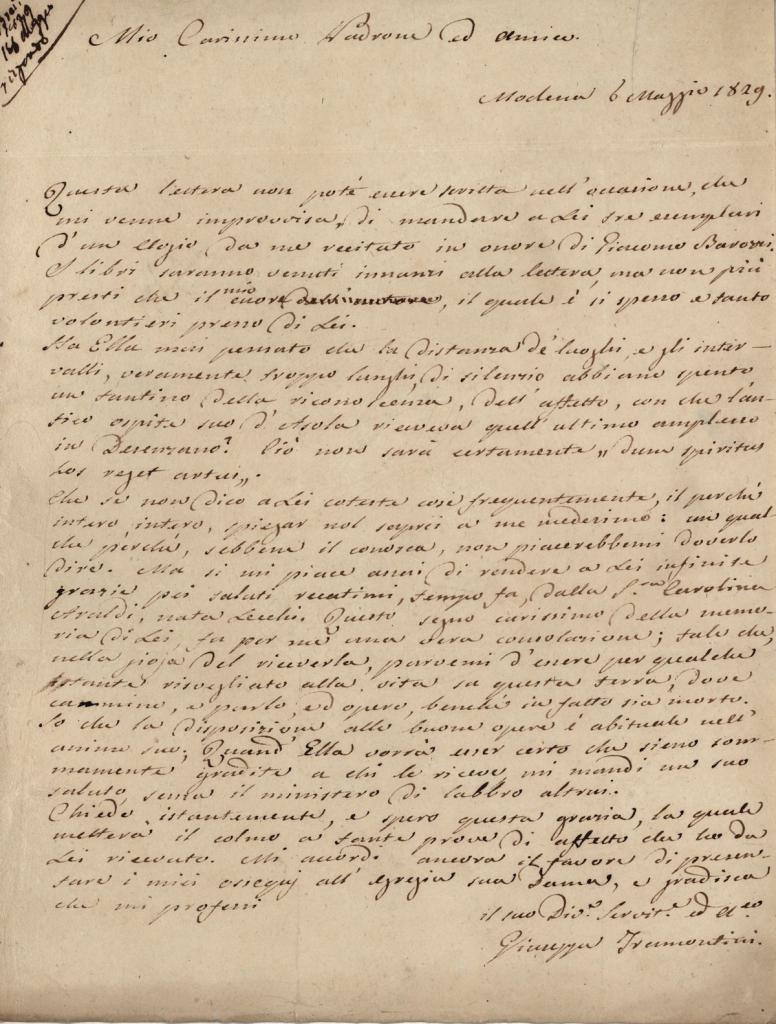 16 Maggio
risposto
Mio Carissimo Padrone ed Amico.
Modena 6 Maggio 1829.
Questa lettera non poté essere scritta nell' occasione, che
mi venne improvvisa, di mandare a Lei tre esemplari
d' un Elogio da me recitato in onore di Giacomo Barozzi.
I libri saranno venuti innanzi alla lettera, ma non più
presti che il mio cuore dell' autore, il quale è sì spesso e tanto
volontieri presso di Lei.
Ha Ella mai pensato che la distanza de' luoghi, e gli inter-
valli, veramente troppo lunghi, di silenzio abbiano spento
un tantino della riconoscenza, dell' affetto, con che l' an-
tico ospite suo d' Asola riceveva quell' ultimo amplesso
in Desenzano? Ciò non sarà certamente „ dum spiritus
hos reget artus „.
Che se non dico a Lei coteste cose frequentemente, il perché
intero intero, spiegar nol saprei a me medesimo: un qual-
che perché, sebbene il conosca, non piacerebbemi doverlo
dire. Ma sì mi piace assai di rendere a Lei infinite
grazie pei saluti recatimi, tempo fa, dalla S.ra Carolina
Araldi, nata Cecchi. Questo segno carissimo della memo-
ria di Lei, fu per me una vera consolazione; tale che,
nella gioja del riceverla, parvemi d' essere per qualche
istante risvegliato alla vita su questa terra, dove
cammino, e parlo, ed opero, benché in fatto sia morto.
So che la disposizione alle buone opere è abituale nell'
anima sua; Quand' Ella vorrà esser certo che sieno som-
mamente gradite a chi le riceve, mi mandi un suo
saluto, senza il ministero di labbro altrui.
Chiedo istantemente, e spero questa grazia, la quale
metterà il colmo a tante prove di affetto che ho da
Lei ricevuto. Mi accordi ancora il favore di presen-
tare i miei ossequj all' egregia sua Dama, e gradisca
che mi professi
il suo Div.o Servit.e ed A.co
Giuseppe Tramontini.